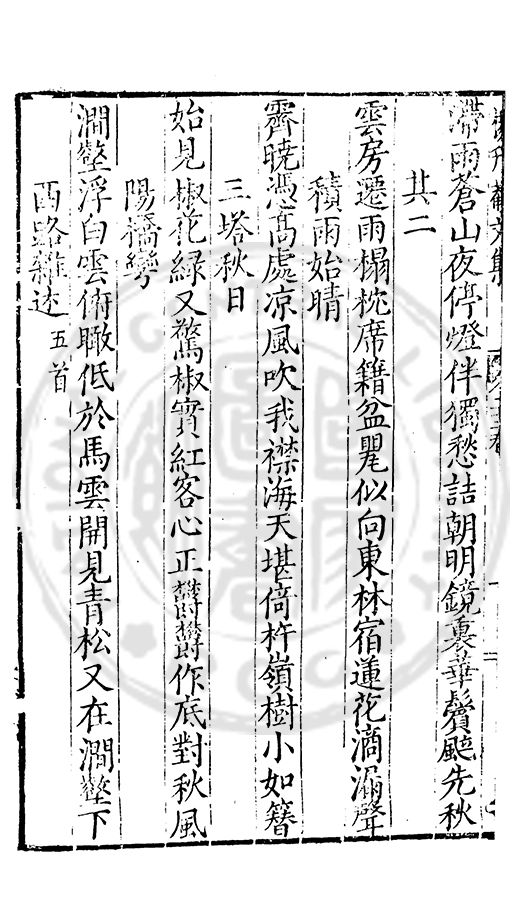 升菴文集
滯雨蒼山夜停燈伴獨愁詰朝明鏡裏華鬢颯先秋
其二
雲房遷雨榻枕席籍盆甖似向東林宿蓮花滴漏聲
積雨始晴
霽曉憑髙處凉風吹我襟海天堪倚杵嶺樹小如簪
三塔秋日
始見椒花緑又驚椒實紅客心正欝欝作底對秋風
陽橋
澗壑浮白雲俯瞰低於馬雲開見青松又在澗壑下
西路雜述 五首